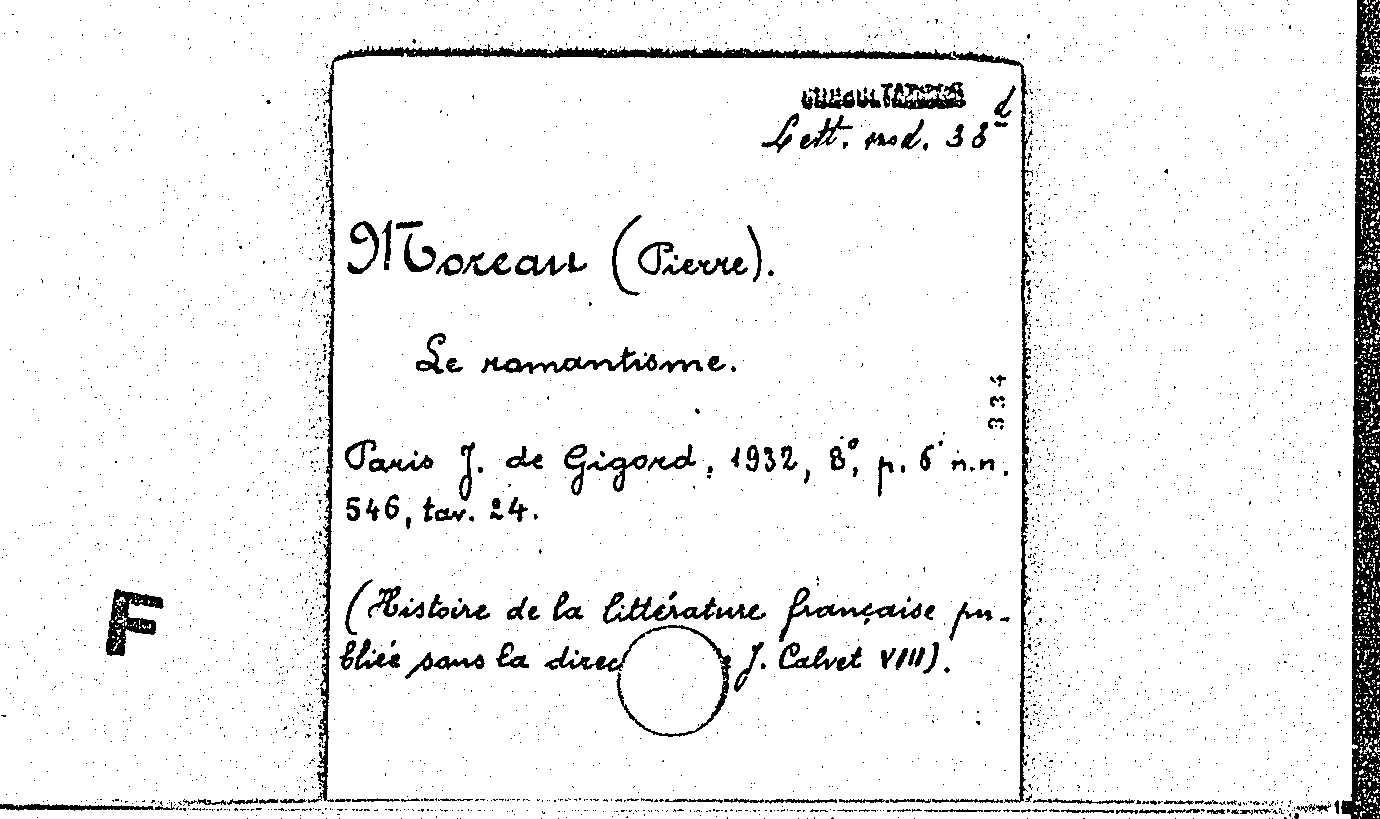 CONSULTAZIONE
Lett. mod. 38 d
Moreau (Pierre).
Le romantisme.
334
Paris J. de Gigord, 1932, 8°, p. 6 n.n.
546, tav. 24.
(Histoire de la littérature française pu-
bliée sous la direc J. Calvet VIII).
F